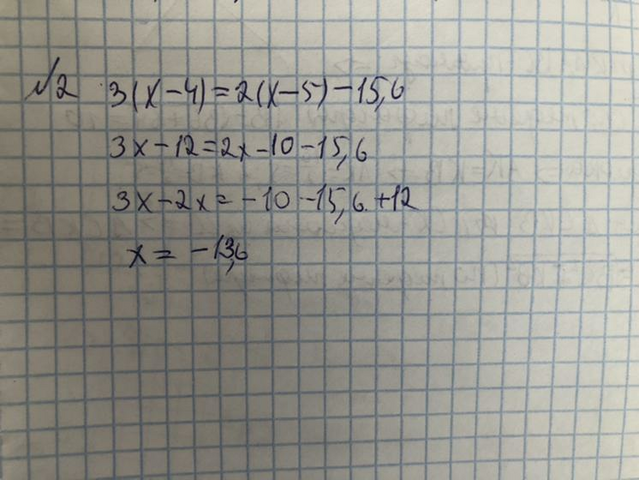 №2 3(x-4)=2(x-5)-15,6
3x-12=2x-10-15,6
3x-2x=-10-15,6+12
x=-13,6